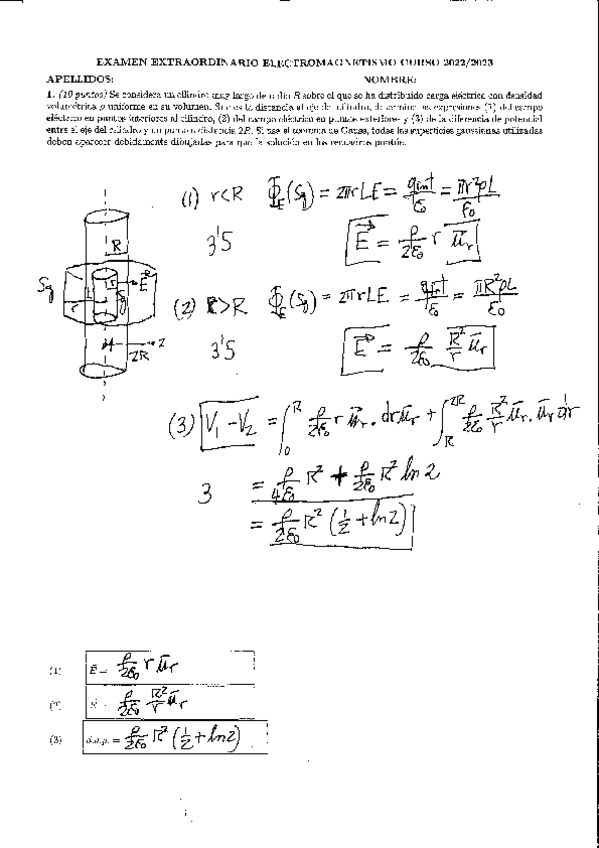 EXAMEN EXTRAORDINARIO ELECTROMAGNETISMO CURSO 2022/2023
APELLIDOS: NOMBRE:
1. (10 puntos) Se considera un cilindro muy largo de radio R sobre el que se ha distribuido carga eléctrica con densidad
volumétrica ρ uniforme en su volumen. Si r es la distancia al eje del cilindro, determine las expresiones (1) del campo
eléctrico en puntos interiores al cilindro, (2) del campo eléctrico en puntos exteriores y (3) de la diferencia de potencial
entre el eje del cilindro y un punto a distancia 2R. Si usa el teorema de Gauss, todas las superficies gaussianas utilizadas
deben aparecer debidamente dibujadas para que la solución en los recuadros puntúe.
(1) r<R Φ_E(Sg) = 2πrLE = qint/ε0 = πr²ρL/ε0
3'5 E⃗ = ρ/2ε0 r ū_r
R
Sg r L r Sg E⃗
1 2
2R
(2) r>R Φ_E(Sg) = 2πrLE = qint/ε0 = πR²ρL/ε0
3'5 E⃗ = ρ/2ε0 R²/r ū_r
(3) V1 - V2 = ∫_0^R ρ/2ε0 r ū_r · dr ū_r + ∫_R^2R ρ/2ε0 R²/r ū_r · ū_r dr
3 = ρ/4ε0 R² + ρ/2ε0 R² ln 2
= ρ/2ε0 R² (1/2 + ln2)
(1) E⃗ = ρ/2ε0 r ū_r
(2) E⃗ = ρ/2ε0 R²/r ū_r
(3) d.d.p. = ρ/2ε0 R² (1/2 + ln2)